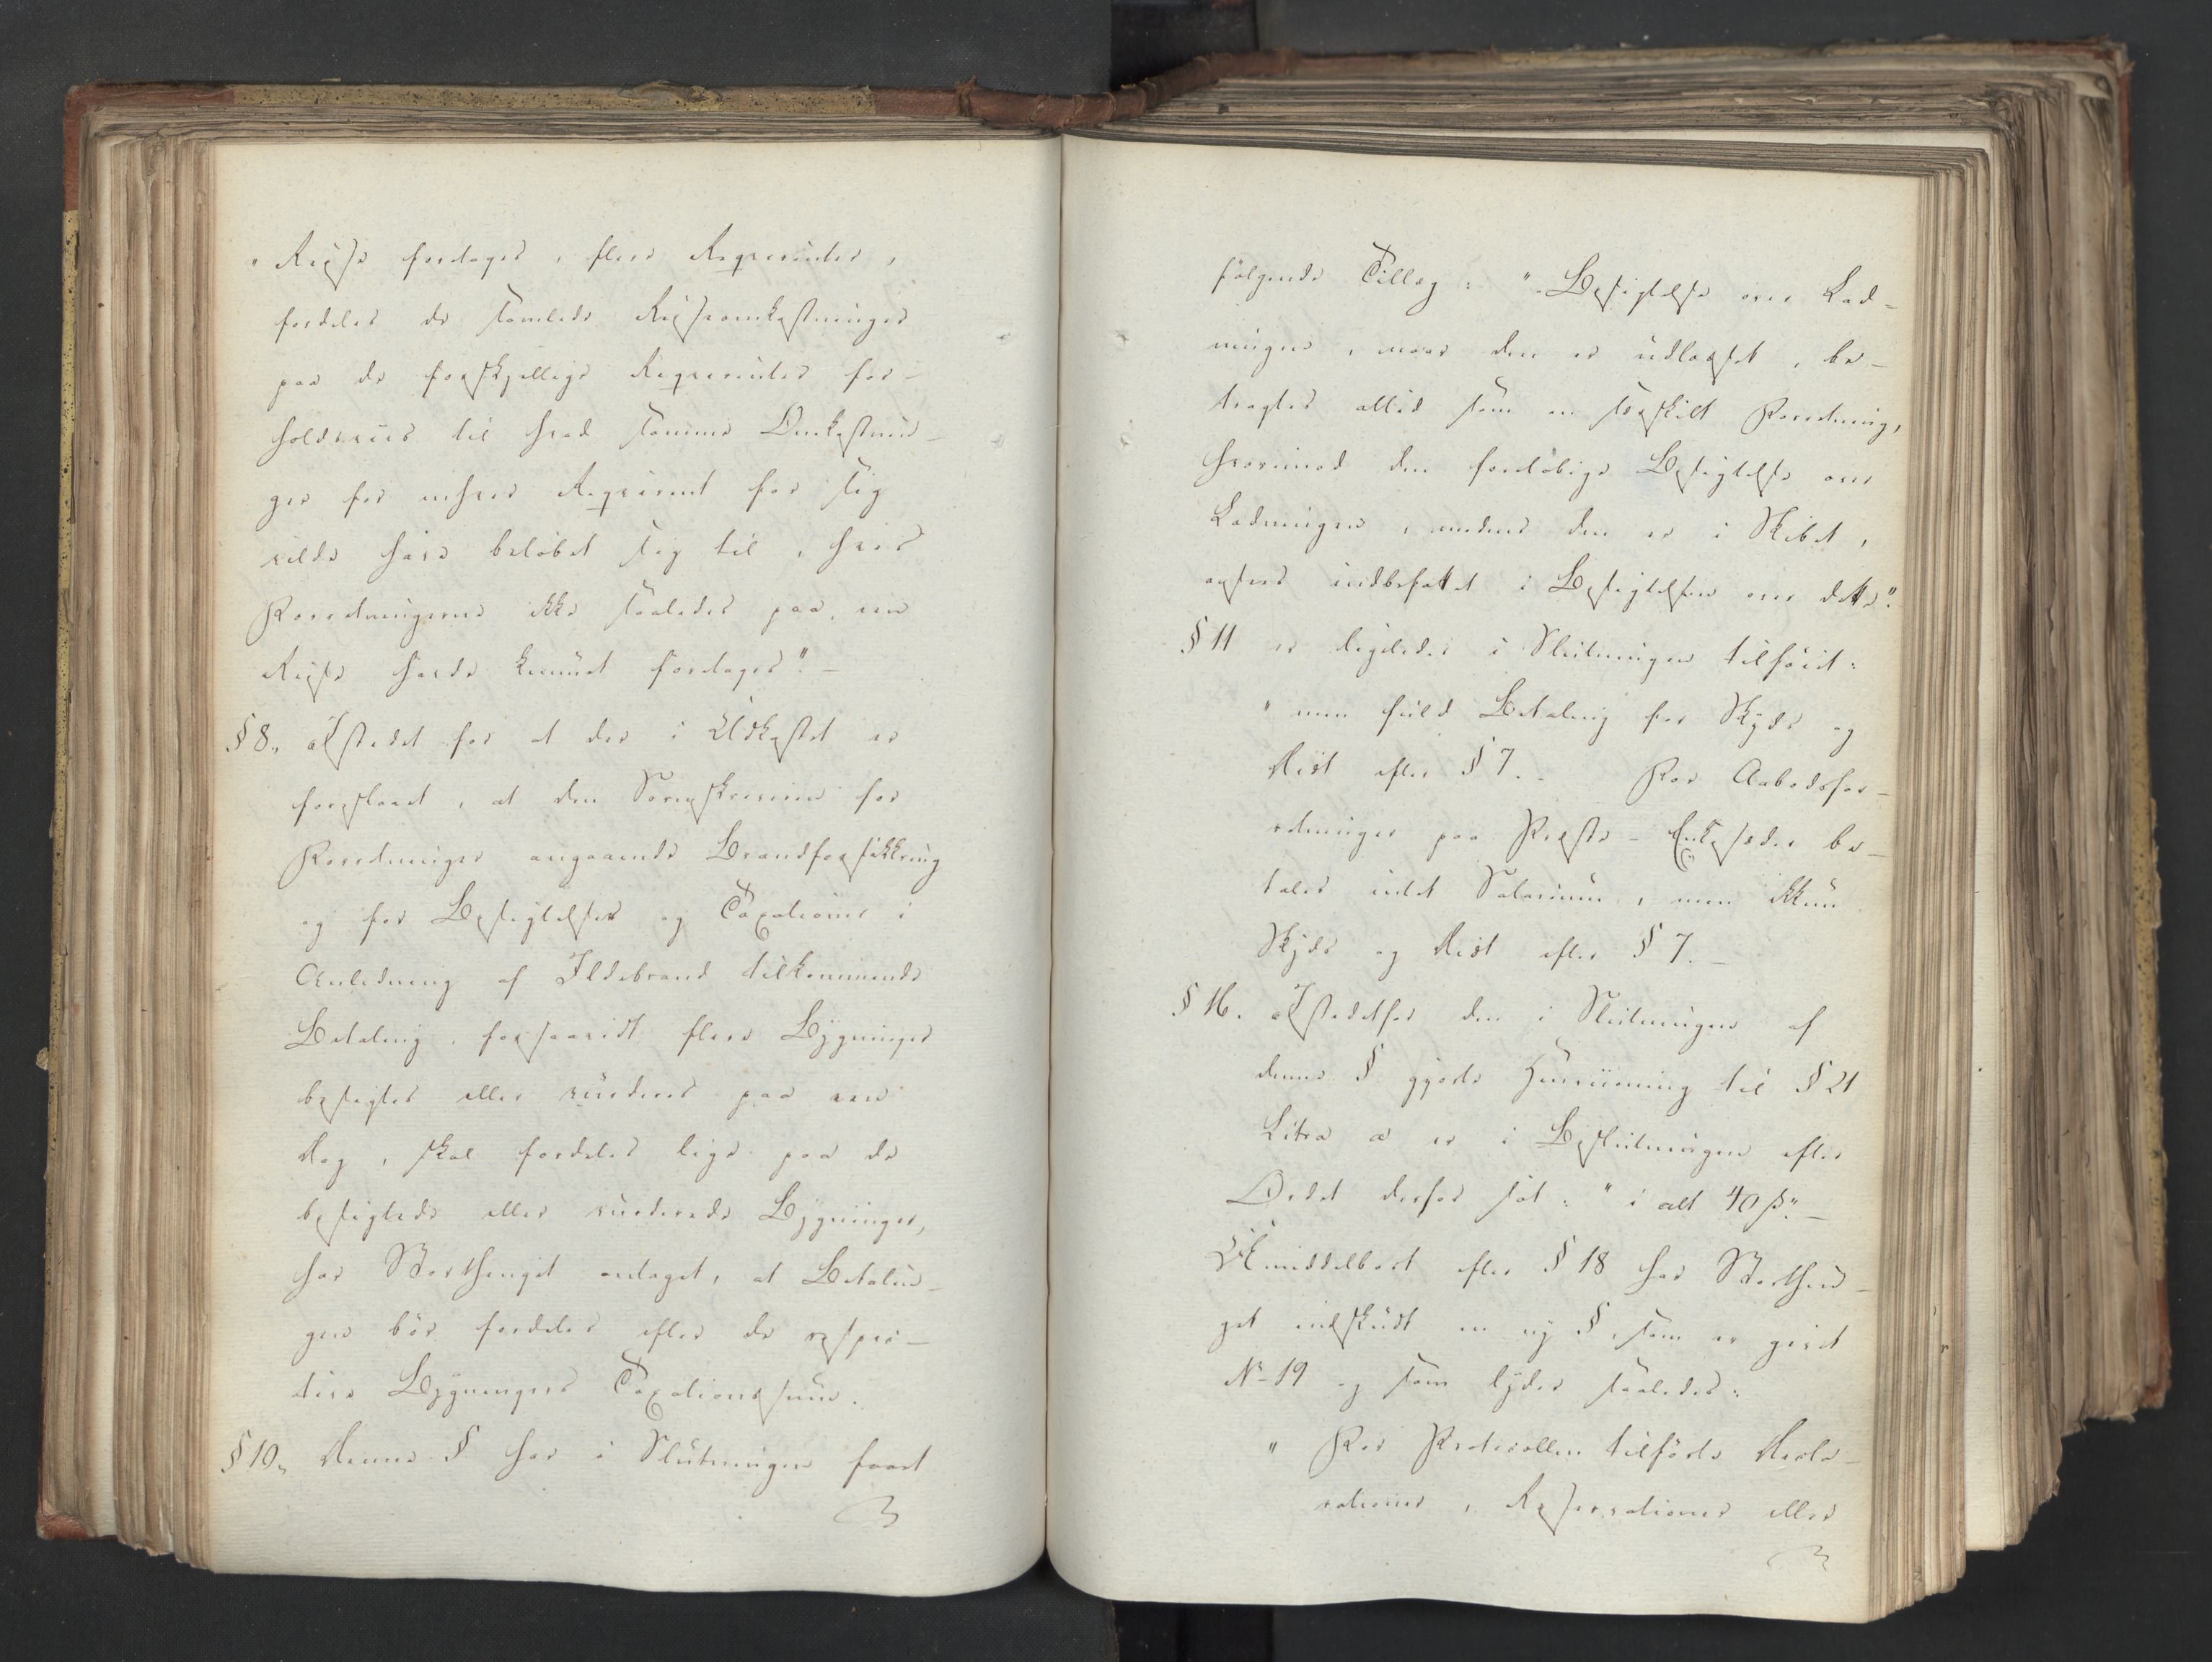 "Reise foretages, flere Reqvirenter,
fordeles de samlede Reiseomkostninger
paa de forskjellige Reqvirenter for-
holdsviis til hvad samme Omkostnin-
ger for enhver Reqvirent for sig
vilde have beløbet sig til, hvis
Forretningerne ikke saaledes paa een
Reise havde kunnet foretages" -
§ 8., Istedet for at der i Udkastet er
foreslaaet, at den Sorenskriveren for
Forretninger angaaende Brandforsikkring
og for Besigtelser og Taxationer i
Anledning af Ildebrand tilkommende
Betaling, forsaavidt flere Bygninger
besigtes eller vurderes paa een
Dag, skal fordeles lige paa de
besigtede eller vurderede Bygninger,
har Storthinget antaget, at Betalin-
gen bør fordeles efter de respec-
tive Bygningers Taxationssum.
§ 10., Denne § har i Slutningen faaet
følgende Tillæg: "Besigtelse over Lad-
ningen, naar den er udlosset, be-
tragtes altid som en særskilt Forretning,
hvorimod den foreløbige Besigtelse over
Ladningen, medens den er i Skibet,
ansees indbefattet i Besigtelsen over dette".
§ 11 er ligeledes i Slutningen tilføiet:
" men fuld Betaling for Skyds og
Diæt efter § 7. - For Aabodsfor-
retninger paa Præste-Enkesæder be-
tales intet Salarium, men ikkun
Skyds og Diæt efter § 7. -
§ 16. Istedetfor den i Slutningen af
denne § gjorte Henviisning til § 21
Litra a er i Beslutningen efter
Ordet derfor sat: " i alt 40 ß". -
Umiddelbart efter § 18 har Storthin-
get indskudt en ny §, som er givet
No 19 og som lyder saaledes:
" For Protocollen tilførte Decla-
rationer, Reservationer eller